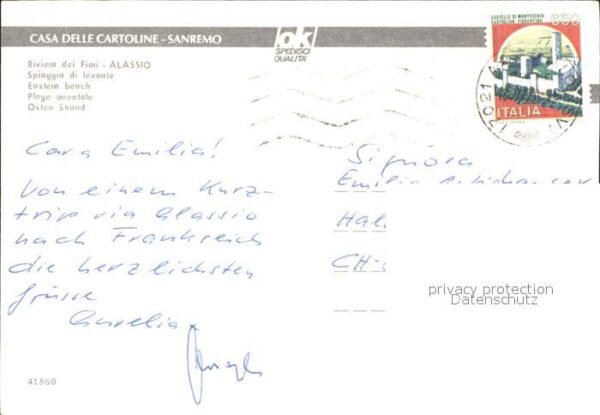 CASA DELLE CARTOLINE - SANREMO
ok
SPEDISCI
QUALITA'
CASTELLO DI MONTECCHIO
CASTIGLION FIORENTINO
650
ITALIA
Riviera dei Fiori - ALASSIO
Spiaggia di levante
Eastern beach
Plage orientale
Osten Strand
Cara Emilia!
Von einem Kurz-
trip via Alassio
nach Frankreich
die herzlichsten
Grüsse
Aurelia
Signora
Emilia
Hal
CH-
privacy protection
Datenschutz
41560